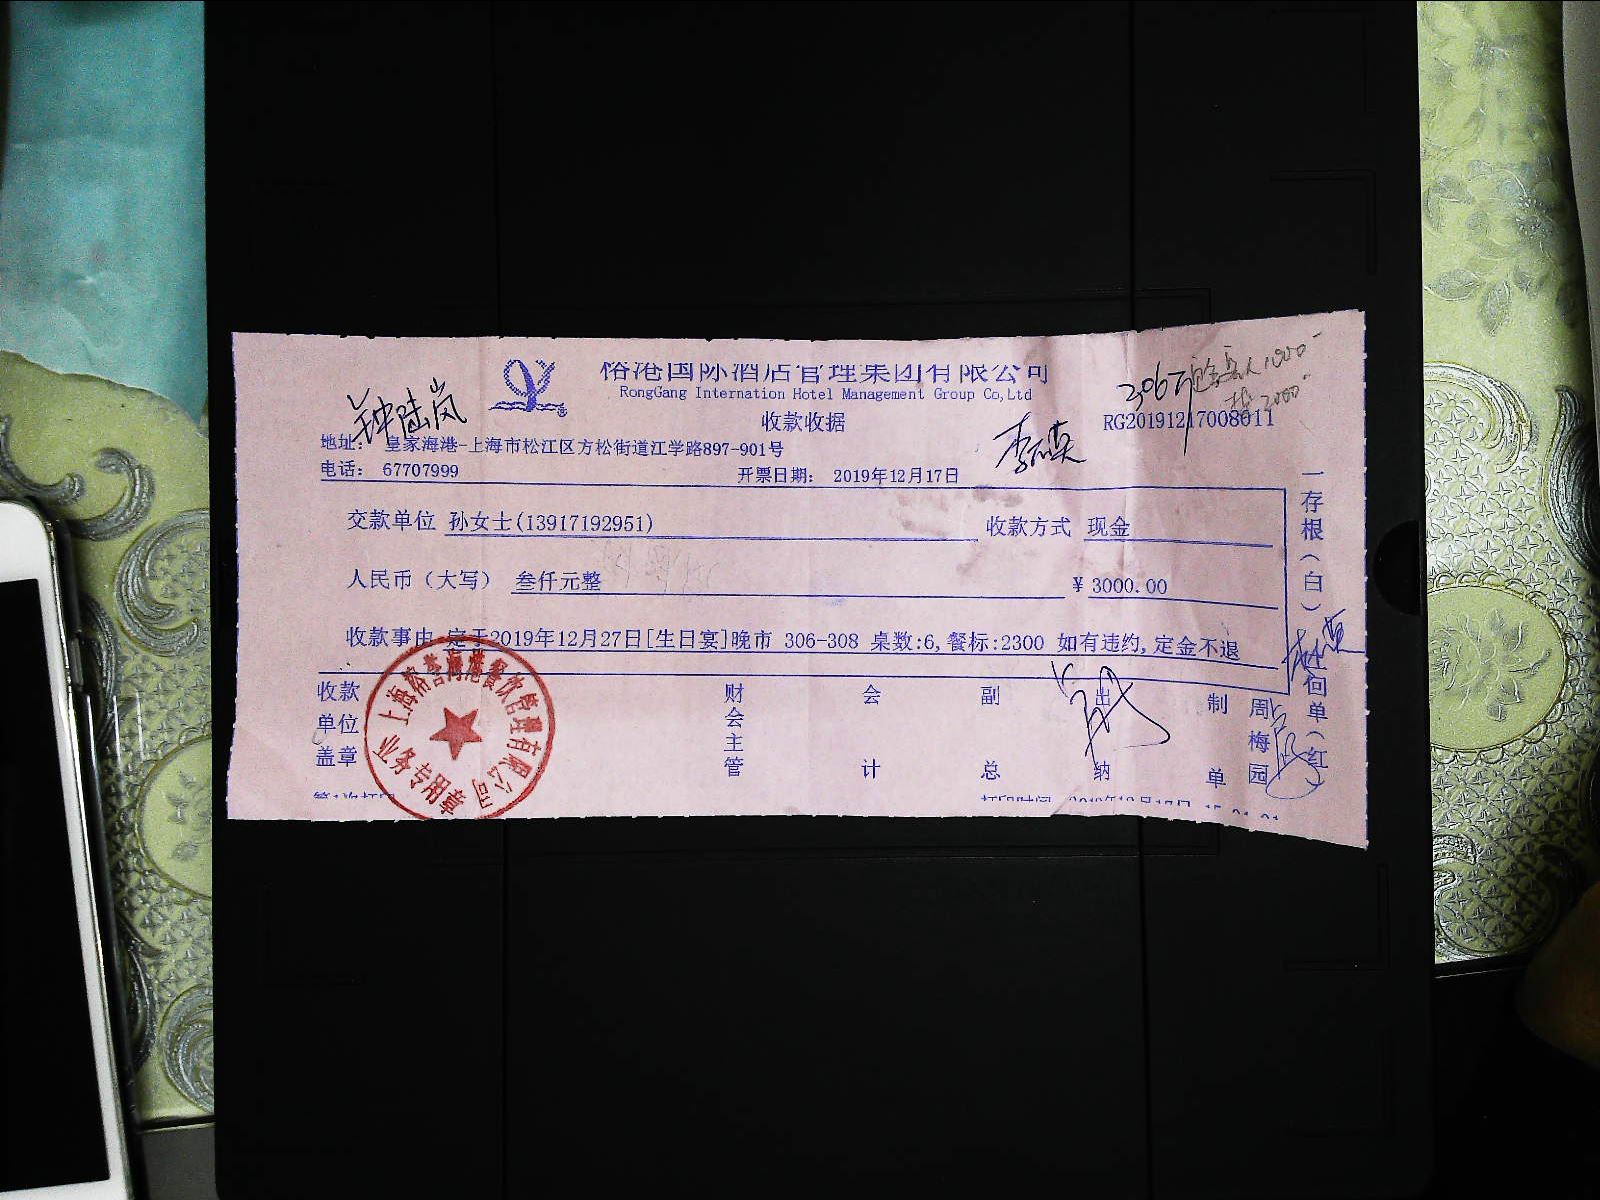 裕港国际酒店管理集团有限公司
RongGang Internation Hotel Management Group Co,Ltd
收款收据
RG20191217008011
钟陆岚
地址: 皇家海港-上海市松江区方松街道江学路897-901号
电话: 67707999
开票日期: 2019年12月17日
交款单位 孙女士(13917192951)
收款方式 现金
人民币（大写） 叁仟元整
¥ 3000.00
收款事由 定于2019年12月27日[生日宴]晚市 306-308 桌数:6,餐标:2300 如有违约,定金不退
收款单位盖章
财会主管
会计
副总
出纳
制单
周梅园
业务专用章
第1次打印
打印时间